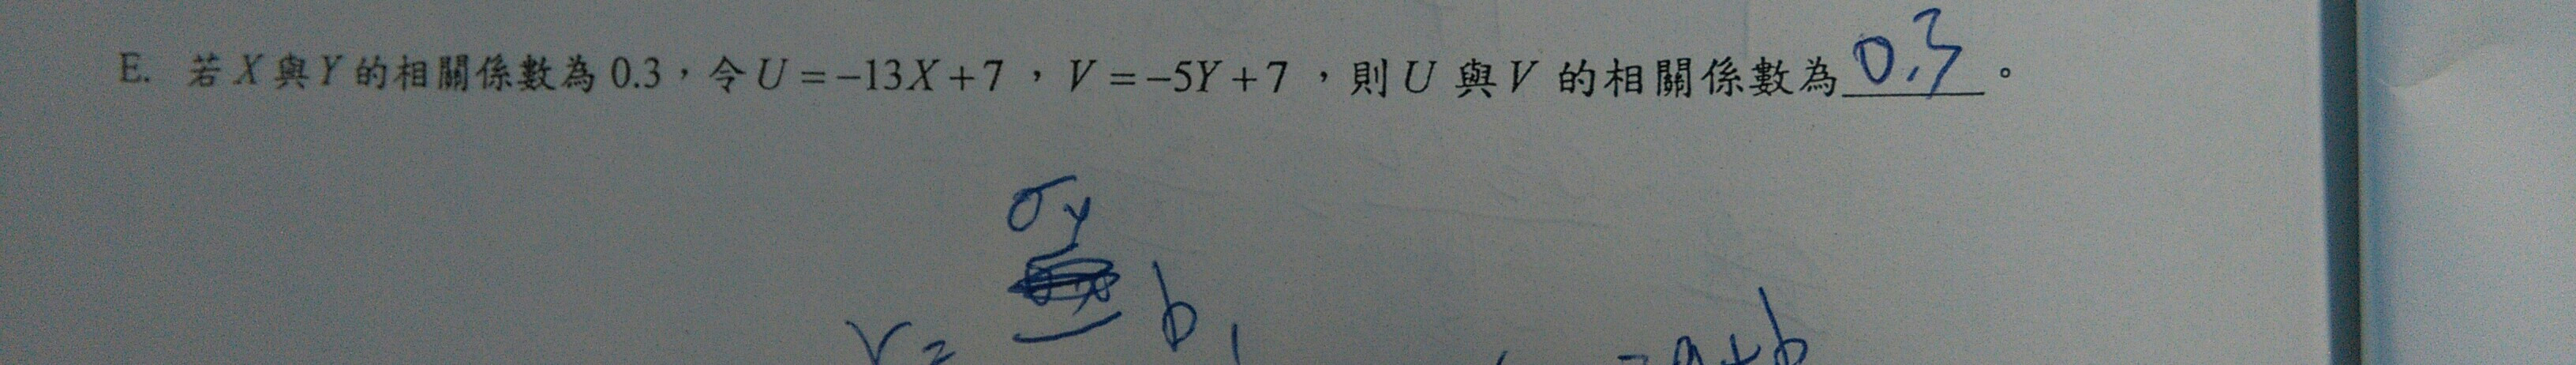 E. 若 X 與 Y 的相關係數為 0.3，令 U = −13X + 7 ， V = −5Y + 7 ，則 U 與 V 的相關係數為 0.3 。
σy
r = b1
= a + b